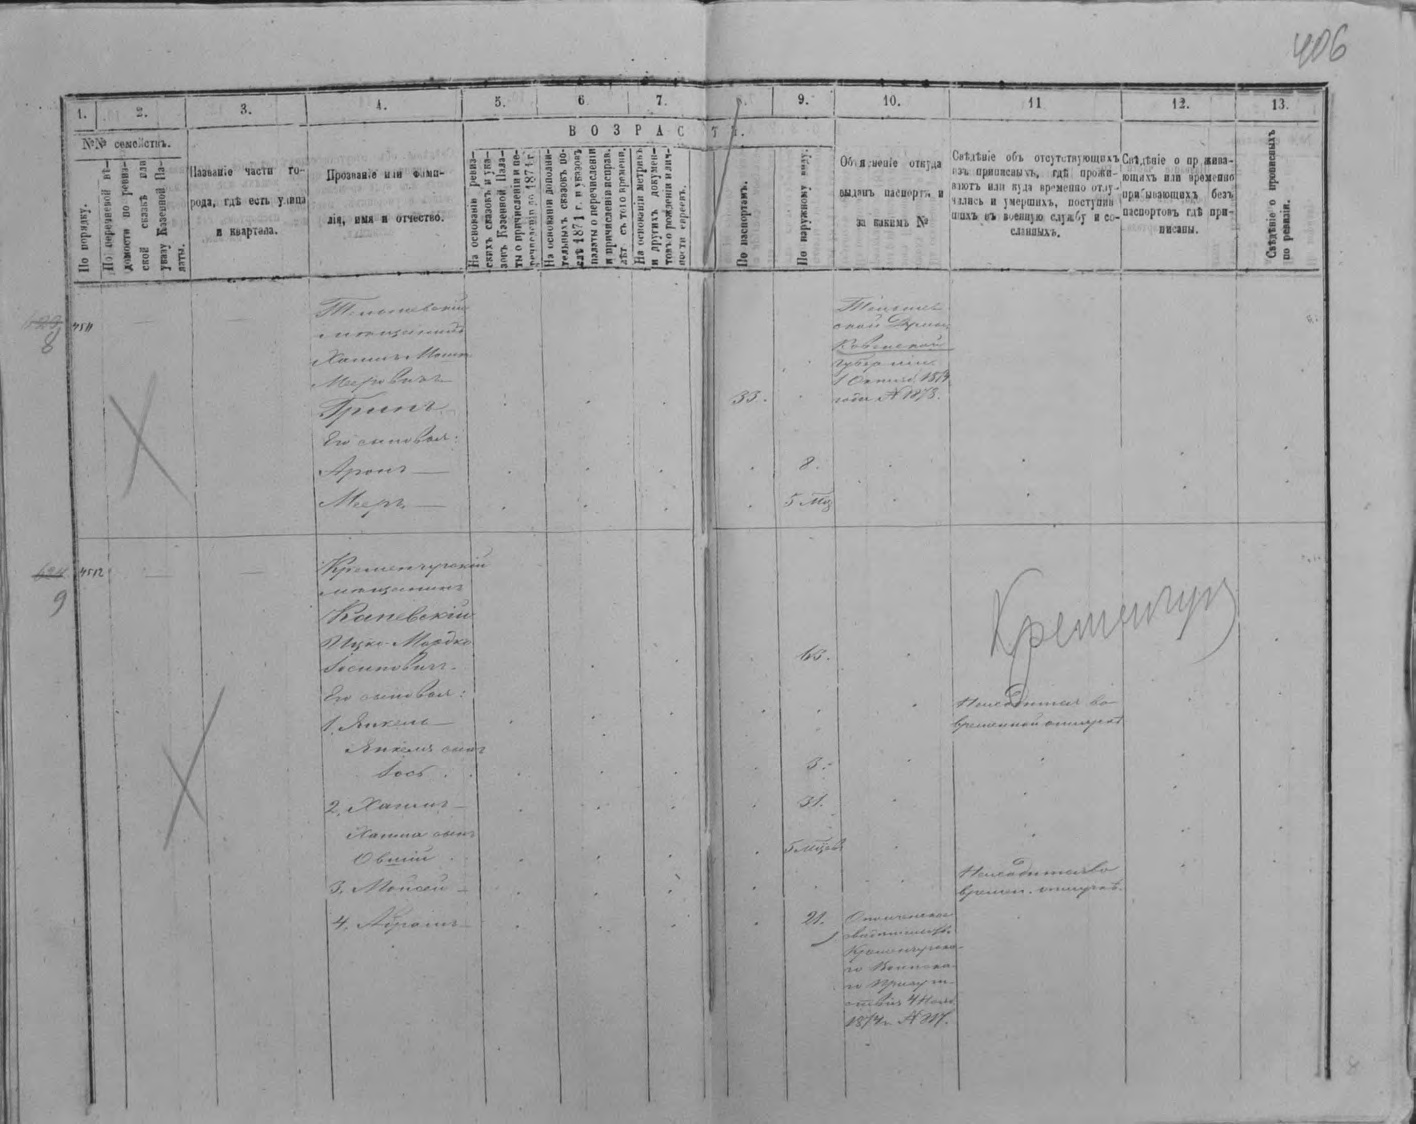 406
1. 2. 3. 4. 5. 6 7. 8. 9. 10. 11 12. 13.
№№ семействъ.
По порядку.
По перевѣ
домости по ревиз-
ской сказкѣ или
указу Казенной Па-
латы.
Названіе части го-
рода, гдѣ есть улица
и квартала.
Прозваніе или фами-
лія, имя и отчество.
ВОЗРАСТЪ.
На основаніи ревиз-
скихъ сказокъ и ука-
зовъ Казенной Пала-
ты о причисленіи и пе-
речисленіи до 1874 г.
На основаніи дополни-
тельныхъ сказокъ по-
слѣ 1874 г. и указовъ
палаты о перечисленіи
и причисленіи исправ.
лѣт съ того времени.
На основаніи метрикъ
и другихъ докумен-
товъ о рожденіи и лич-
ности евреевъ.
По паспортамъ.
По наружному виду.
Объясненіе откуда
выданъ паспортъ и
за какимъ №
Свѣдѣніе объ отсутствующихъ
изъ приписныхъ, гдѣ прожи-
ваютъ или куда временно отлу-
чились и умершихъ, поступив
шихъ въ военную службу и со-
сланныхъ.
Свѣдѣніе о прожива-
ющихъ или временно
прибывающихъ безъ
паспортовъ гдѣ при-
писаны.
Свѣдѣніе о
по ревизіи.
8
4511
Тельшевскій
мѣщанинъ
Хаимъ
Мееровичъ
Гринъ
Его сыновья:
Аронъ
Мееръ
33.
8.
5 Мц
Ковенской
губерніи
1874
года № 1873.
9
4512
Кременчугскій
мѣщанинъ
Каневскій
Ицко-Мордко
Іосиповичъ
Его сыновья:
1. Янкель
Янкеля сынъ
Іось
2. Хаимъ
Хаима сынъ
Овшій
3. Мойсей
4. Абрамъ
63.
3.
31.
5 Мцев
21.
Кременчуг
Находится во
временной отлучкѣ
Находится во
времен. отлучкѣ.
Ополченское
свидѣтельство
Кременчугска-
го Воинска-
го Присут-
ствія 4 Нояб
1874 г. № 217.